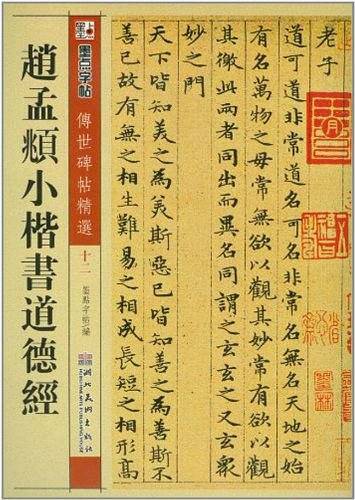 墨点
墨点字帖
傳世碑帖精選
十二
墨點字帖 编
趙孟頫小楷書道德經
湖北美術出版社
HUBEI FINE ARTS PUBLISHING HOUSE
老子
道可道非常道名可名非常名無名天地之始
有名萬物之母常無欲以觀其妙常有欲以觀
其徼此兩者同出而異名同謂之玄玄之又玄衆
妙之門
天下皆知美之為美斯惡已皆知善之為善斯不
善已故有無之相生難易之相成長短之相形高